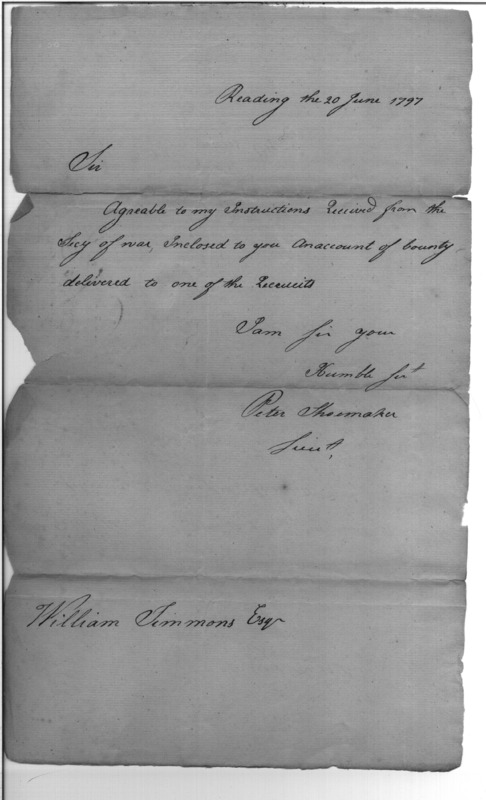 Reading the 20 June 1797
Sir
Agreable to my Instructions Received from the
Secy of war, Inclosed to you An account of bounty
delivered to one of the Recruits
I am sir your
Humble Sert
Peter Shoemaker
Lieut,
William Simmons Esqr